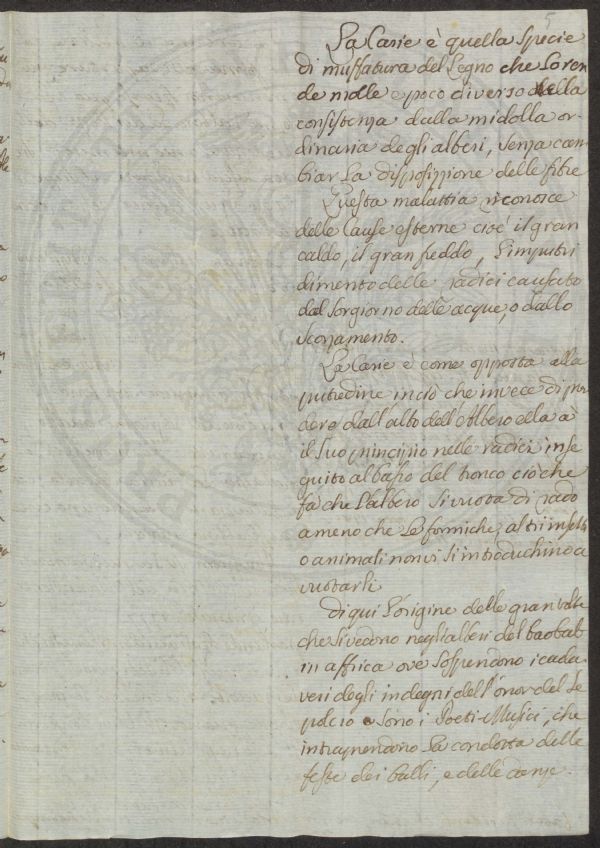 5
La Carie è quella specie
di muffatura del Legno che Lo ren
de molle e poco diverso della
consistenza dalla midolla or-
dinaria degli alberi, senza cam
biar La disposizione delle fibre
Questa malattia riconosce
delle Cause esterne cioè il gran
caldo, il gran freddo, L'imputri
dimento delle radici causato
dal sorgiorno delle acque, o dallo
La Carie è come opposta alla
putredine in ciò che invece di pren
dere dall'alto dell'Albero ella à
il suo principio nelle radici inse
guito al basso del tronco ciò che
fà che L'albero si vuota di rado
a meno che Le formiche, altri insetti
o animali non vi si introduchino a
vuotarli
di qui L'origine delle gran volte
che si vedono negli alberi del baobab
in affrica ove sospendono i cada
veri degli indegni dell'onor del Se
polcro e sono i Poeti-Musici, che
intraprendono La condotta delle
feste dei balli, e delle danze.